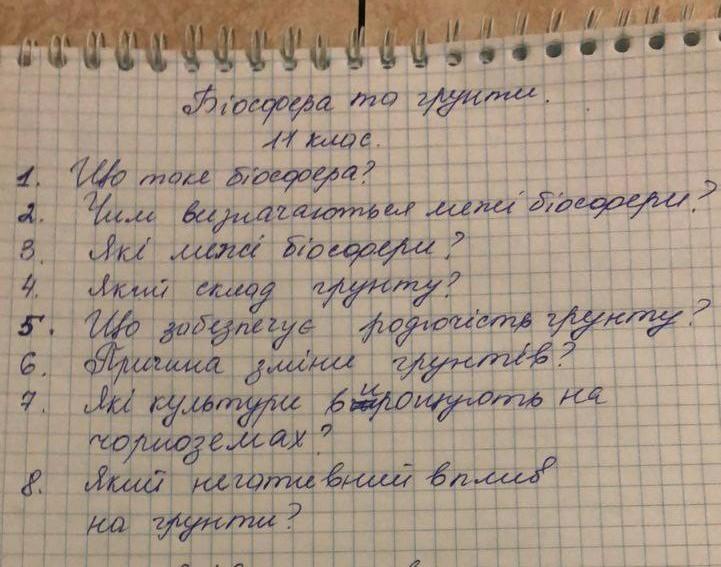 Біосфера та грунти.
11 клас.
1. Що таке біосфера?
2. Чим визначаються межі біосфери?
3. Які межі біосфери?
4. Який склад грунту?
5. Що забезпечує родючість грунту?
6. Причина зміни грунтів?
7. Які культури вирощують на
чорноземах?
8. Який негативний вплив
на грунти?